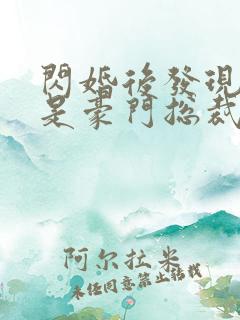 閃婚後發現
是豪門総裁
阿尔拉米
未经同意禁止转载